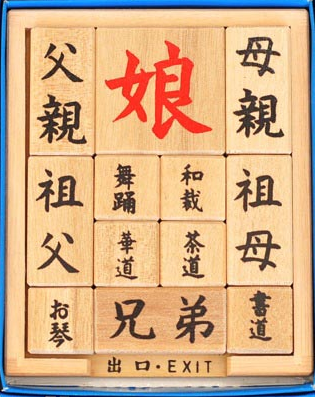 父親
娘
母親
祖父
舞踊
和裁
祖母
華道
茶道
お琴
兄弟
書道
出口・EXIT